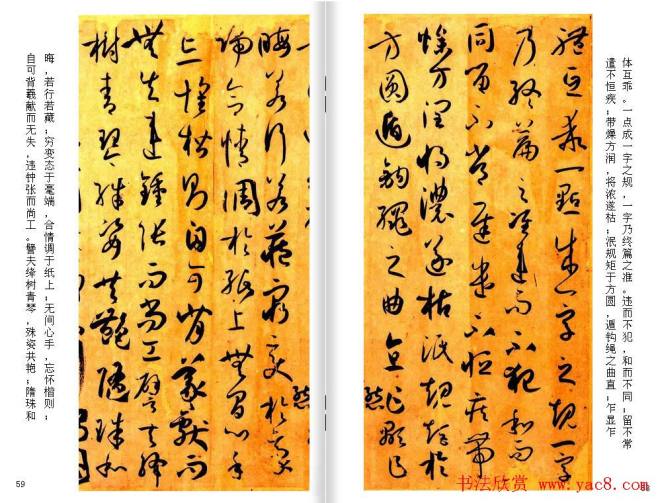 体互乖。一点成一字之规，一字乃终篇之准。违而不犯，和而不同；留不常
遣不恒疾；带燥方润，将浓遂枯；泯规矩于方圆，遁钩绳之曲直；乍显乍
體互乖一點成一字之規一字
乃終篇之準違而不犯和而不
同留不常遲遣不恒疾帶
燥方潤將濃遂枯泯規矩於
方圓遁鉤繩之曲直乍顯乍
晦若行若藏窮變態於毫
端合情調於紙上無間心手
忘懷楷則自可背羲獻而
無失違鍾張而尚工譬夫絳
樹青琴殊姿共艷隋珠和
晦，若行若藏；穷变态于毫端，合情调于纸上；无间心手，忘怀楷则；
自可背羲献而无失，违钟张而尚工。譬夫绛树青琴，殊姿共艳；隋珠和
59
书法欣赏 www.yac8.com